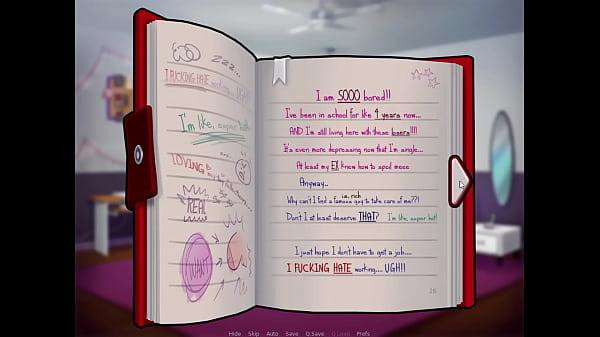 Zzz...
I FUCKING HATE working... UGH!!
I'm like, super hot!
LOVING
REAL
I WANT
I am SOOO bored!!
I've been in school for like 4 years now...
AND I'm still living here with these losers!!!!
It's even more depressing now that I'm single...
At least my EX knew how to spoil meee
Anyway..
i.e. rich
Why can't I find a famous guy to take care of me??!
Don't I at least deserve THAT? I'm like, super hot!
I just hope I don't have to get a job....
I FUCKING HATE working.... UGH!!
Hide Skip Auto Save Q.Save Q.Load Prefs